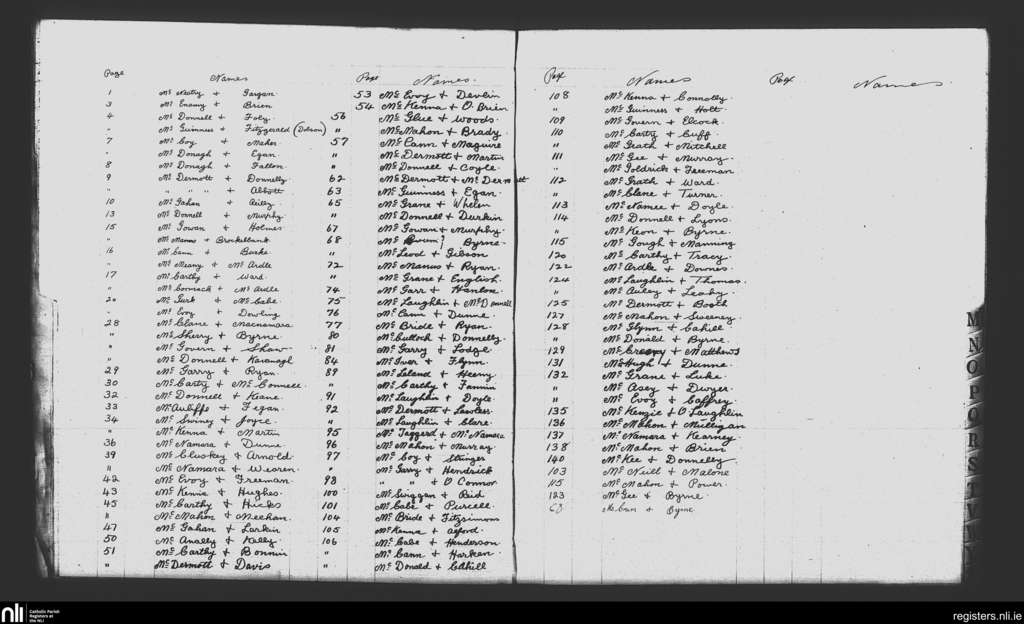 Page Names
1 Mc & Gargan
3 Mc Enany & Brien
4 Mc Donnell & Foly
" Mc Guinness & Fitzgerald (Dobson)
7 Mc Coy & Maher
" Mc Donagh & Egan
8 Mc Donagh & Fallon
9 Mc Dermott & Donnelly
" " " " & Abbott
10 Mc Gahan & Reilly
13 Mc Donnell & Murphy
15 Mc Gowan & Holmes
" Mc Manus & Brockelbank
16 Mc Cann & Burke
" Mc Meany & Mc Ardle
17 Mc Carthy & Ward
" Mc Cormack & Mc Ardle
20 Mc Gurk & McCabe
" Mc Evoy & Dowling
28 Mc Clane & Macnamara
" McSherry & Byrne
" Mc Govern & Shaw
" Mc Donnell & Kavanagh
29 Mc Garry & Ryan
30 Mc Carty & Mc Connell
32 Mc Donnell & Keane
33 McAuliffe & Fegan
34 Mc Swiney & Joyce
" McKenna & Martin
36 Mc Namara & Dunne
39 Mc Cluskey & Arnold
" Mc Namara & Weoren
42 Mc Evoy & Freeman
43 Mc Kenna & Hughes
45 Mc Carthy & Hicks
" Mc Mahon & Meehan
47 Mc Gahan & Larkin
50 Mc Anally & Kelly
51 Mc Carthy & Bonnin
" Mc Dermott & Davis
Page Names
53 Mc Evoy & Devlin
54 Mc Kenna & O'Brien
56 Mc Glue & Woods
" McMahon & Brady
57 Mc Cann & Maguire
" Mc Dermott & Martin
" Mc Donnell & Coyle
62 McDermott & Mc Dermott
63 Mc Guinness & Egan
65 Mc Grane & Whelan
" Mc Donnell & Durkin
67 Mc Gowan & Murphy
68 Mc Byrne
" Mc Leod & Gibson
72 Mc Manus & Ryan
" Mc Grane & English
74 Mc Garr & Hanlon
75 Mc Laughlin & McDonnell
76 Mc Cann & Dunne
77 Mc Bride & Ryan
80 McCulloch & Donnelly
81 Mc Garry & Lodge
84 Mc Iver & Flynn
89 Mc Leland & Heeny
" Mc Carthy & Fannin
91 McLaughlin & Doyle
92 Mc Dermott & Lawless
" Mc Laughlin & Clare
95 Mc Taggerd & Mc Namara
96 Mc Mahon & Murray
97 Mc Coy & Stringer
" Mc Garry & Hendrick
98 " " & O'Connor
100 Mc Guggan & Reid
101 Mc Cabe & Purcell
104 Mc Bride & Fitzsimons
105 McKenna & Axford
106 Mc Cabe & Henderson
" Mc Cann & Harken
" Mc Donald & Cahill
Page Names
108 Mc Kenna & Connolly
" Mc Guinness & Holt
109 Mc Govern & Elcock
110 Mc Carty & Cuff
" Mc Grath & Mitchell
111 Mc Gee & Murray
" Mc Goldrick & Freeman
112 Mc Grath & Ward
" Mc Clane & Turner
113 Mc Namee & Doyle
114 Mc Donnell & Lyons
" Mc Keon & Byrne
115 Mc Gough & Manning
120 Mc Carthy & Tracy
122 Mc Ardle & Downes
124 McLaughlin & Thomas
" Mc Auley & Leahy
125 Mc Dermott & Booth
127 Mc Mahon & Sweeney
128 Mc Glynn & Cahill
" Mc Donald & Byrne
129 Mc Creevy & Matthews
131 McHugh & Dunne
132 Mc Grane & Luke
" Mc Asey & Dwyer
" Mc Evoy & Caffrey
135 Mc Kenzie & O'Laughlin
136 Mc Mahon & Mulligan
137 Mc Namara & Kearney
138 Mc Mahon & Brien
140 Mc Kee & Donnelly
103 Mc Neill & Malone
115 Mc Mahon & Power
123 Mc Gee & Byrne
68 McCann & Byrne
Page Names
M
N
O
P
nli Catholic Parish Registers at the NLI
registers.nli.ie